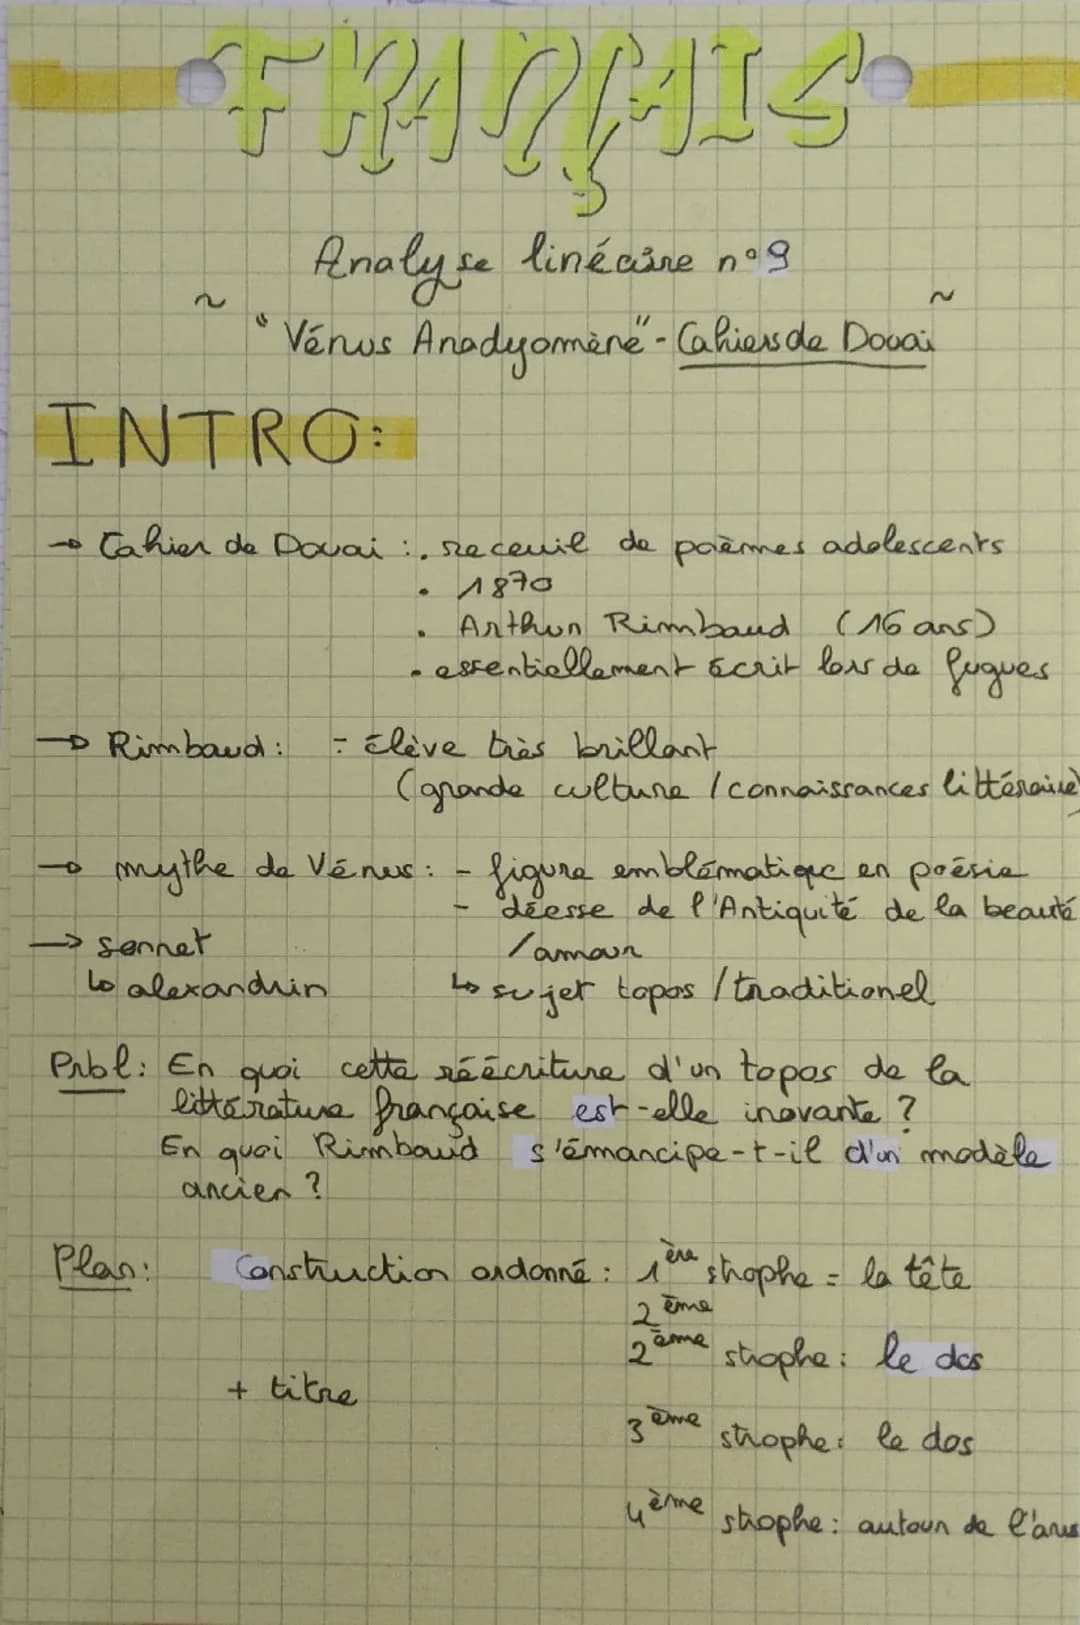 FRANÇAIS
Analyse linéaire n°9
~ "Vénus Anadyomène" - Cahiers de Douai ~
INTRO:
→ Cahier de Douai : . receuil de poèmes adolescents
• 1870
• Arthur Rimbaud (16 ans)
• essentiellement écrit lors de fugues
→ Rimbaud : - élève très brillant
(grande culture / connaissances littéraire)
→ mythe de Vénus : - figure emblématique en poésie
- déesse de l'Antiquité de la beauté
/amour
→ sonnet
↳ alexandrin
↳ sujet topos / traditionel
Prbl : En quoi cette réécriture d'un topos de la
littérature française est-elle inovante ?
En quoi Rimbaud s'émancipe-t-il d'un modèle
ancien ?
Plan : Construction ordonné : 1ère strophe = la tête
2ème
2ème strophe : le dos
+ titre
3ème strophe : le dos
4ème strophe : autour de l'anus